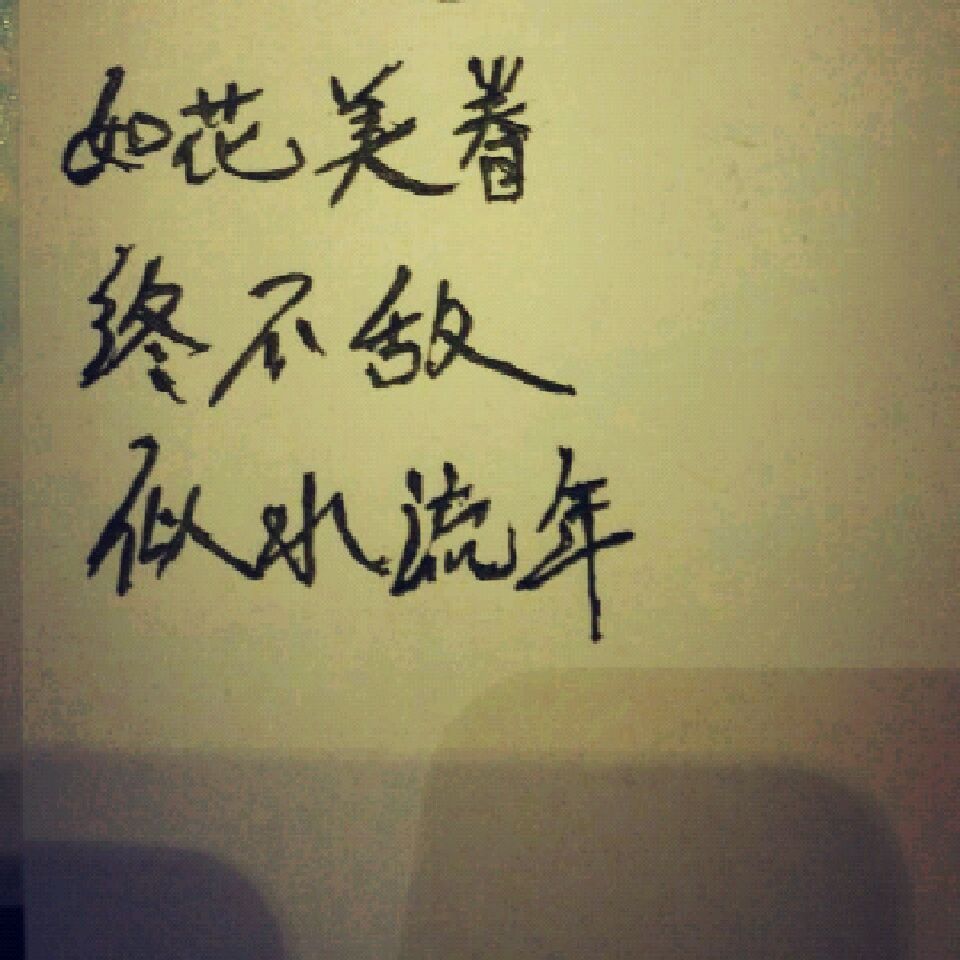 如花美眷
终不敌
似水流年